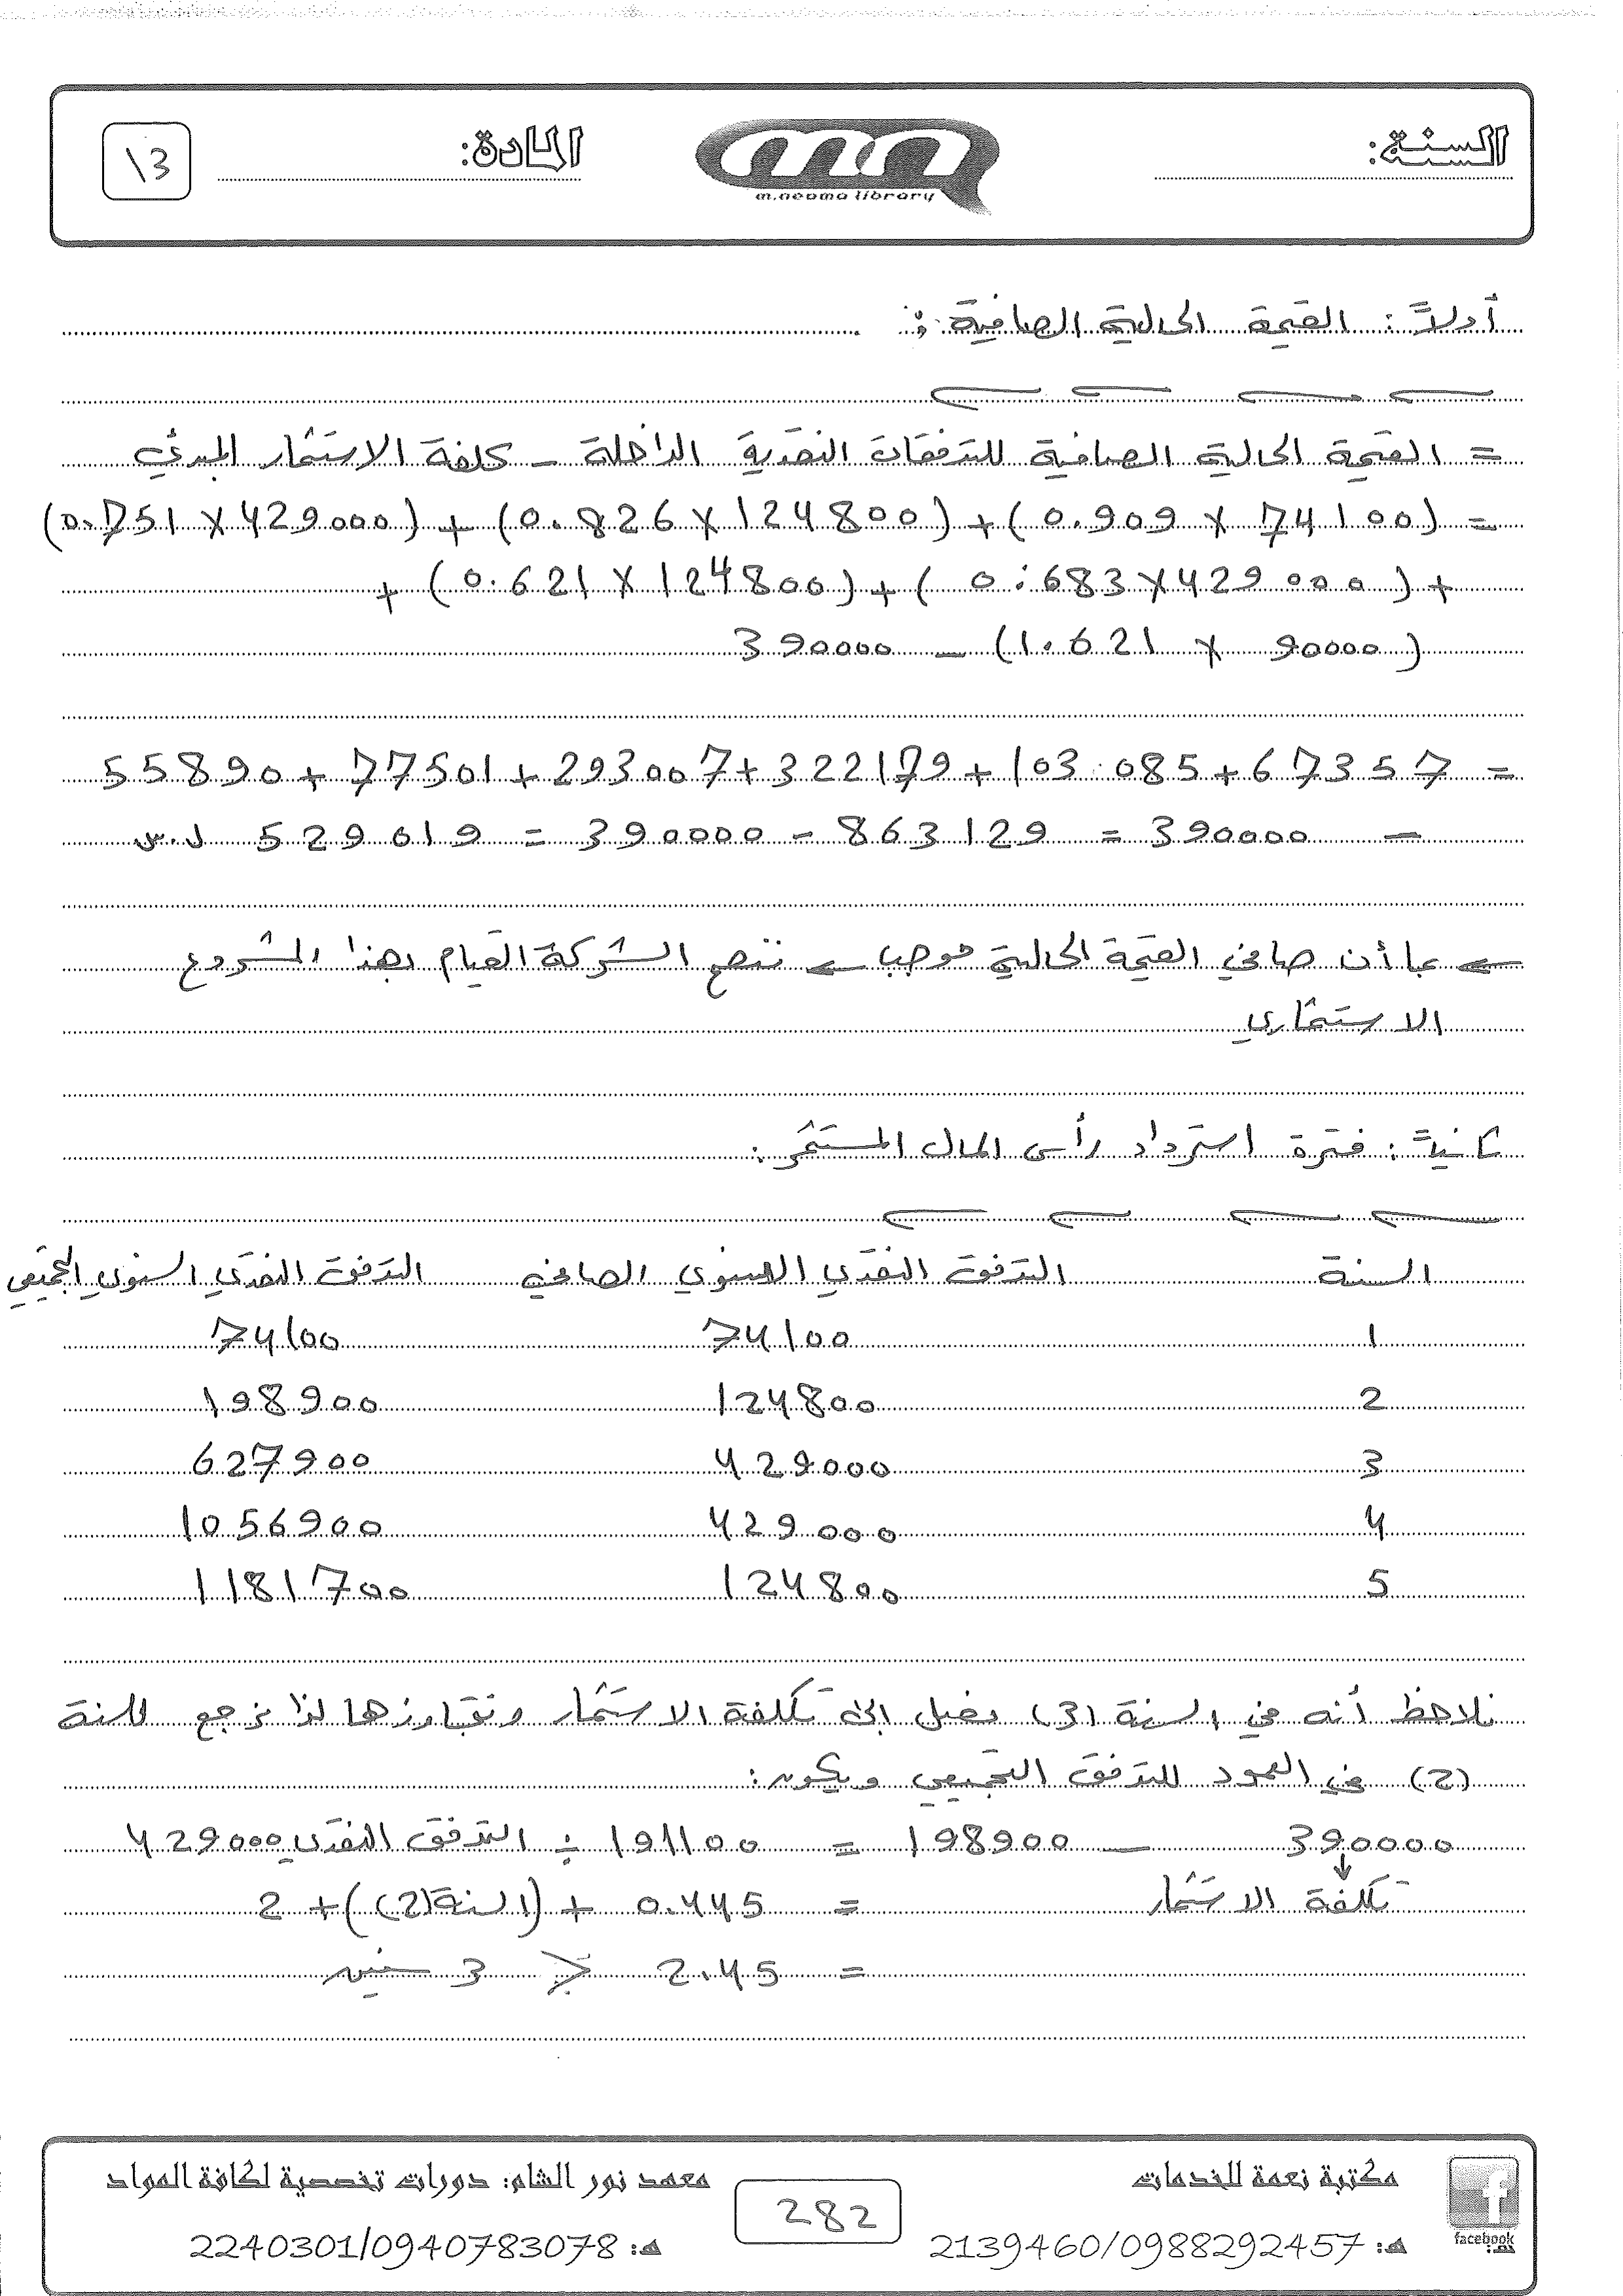 السنة:
المادة:
13
m.neoma library
أولاً: القيمة الحالية الصافية:
= القيمة الحالية الصافية للتدفقات النقدية الداخلة - كلفة الاستثمار المبدئي
= (74100 × 0.909) + (124800 × 0.826) + (429000 × 0.751)
+ (429000 × 0.683) + (124800 × 0.621) +
(90000 × 1.621) - 390000
= 67357 + 103.085 + 322179 + 293007 + 77501 + 55890
- 390000 = 863129 - 390000 = 529019 ل.س
⇐ بما أن صافي القيمة الحالية موجب ⇐ ننصح الشركة القيام بهذا المشروع
الاستثماري
ثانياً: فترة استرداد رأس المال المستثمر:
السنة التدفق النقدي السنوي الصافي التدفق النقدي السنوي التجميعي
1 74100 74100
2 124800 198900
3 429000 627900
4 429000 1056900
5 124800 1181700
نلاحظ أنه في السنة (3) نصل إلى تكلفة الاستثمار ونتجاوزها لذا نرجع للسنة
(2) في العمود للتدفق التجميعي ويكون:
390000 - 198900 = 191100 ÷ التدفق النقدي 429000
تكلفة الاستثمار = 0.445 + (السنة (2)) + 2
= 2.45 > 3 سنين
مكتبة نعمة للخدمات
هـ: 2139460/0988292457
282
معهد نور الشام: دورات تخصصية لكافة المواد
هـ: 2240301/0940783078
facebook